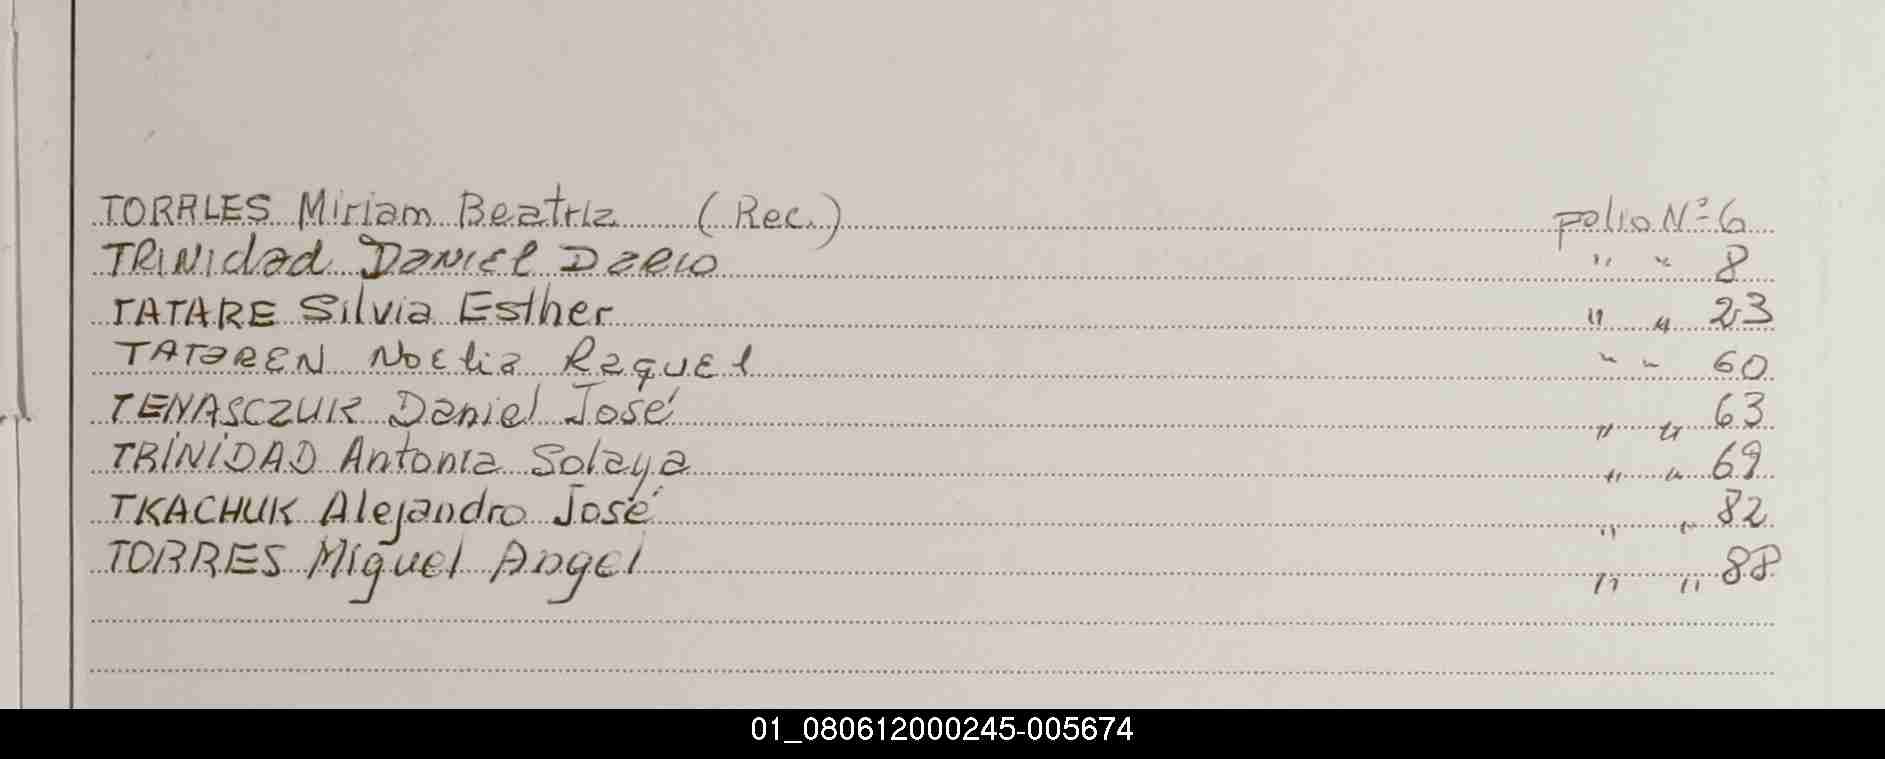 TORALES Miriam Beatriz (Rec.) folio Nº 6
TRINIdad DANIEL DaRIO " " 8
TATARE Silvia Esther " " 23
TATaREN Noelia RaquEl " " 60
TENASCZUK Daniel José " " 63
TRINIDAD Antonia Solaya " " 69
TKACHUK Alejandro José " " 82
TORRES Miguel Angel " " 88
01_080612000245-005674